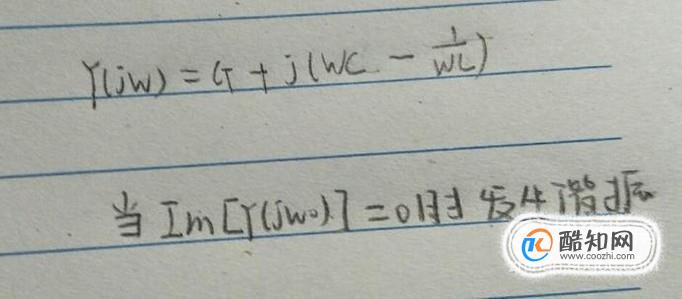 Y(jw) = G + j(wC - 1/wL)
当 Im[Y(jw₀)] = 0时发生谐振
酷知网
www.coozhi.com